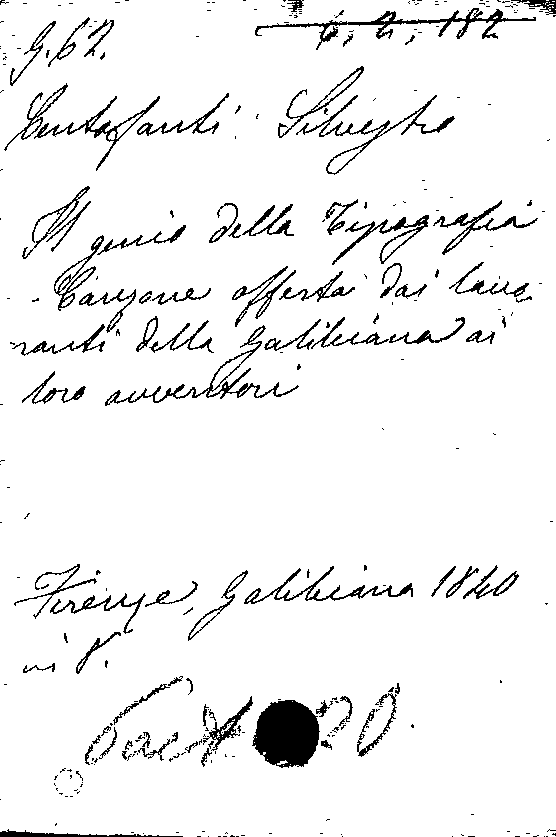 G.62.
6, 2, 182
Centofanti Silvestro
Il genio della Tipografia
- Canzone offerta dai lavo
ranti della Galileiana ai
loro avventori
Firenze, Galileiana 1840
in 8.